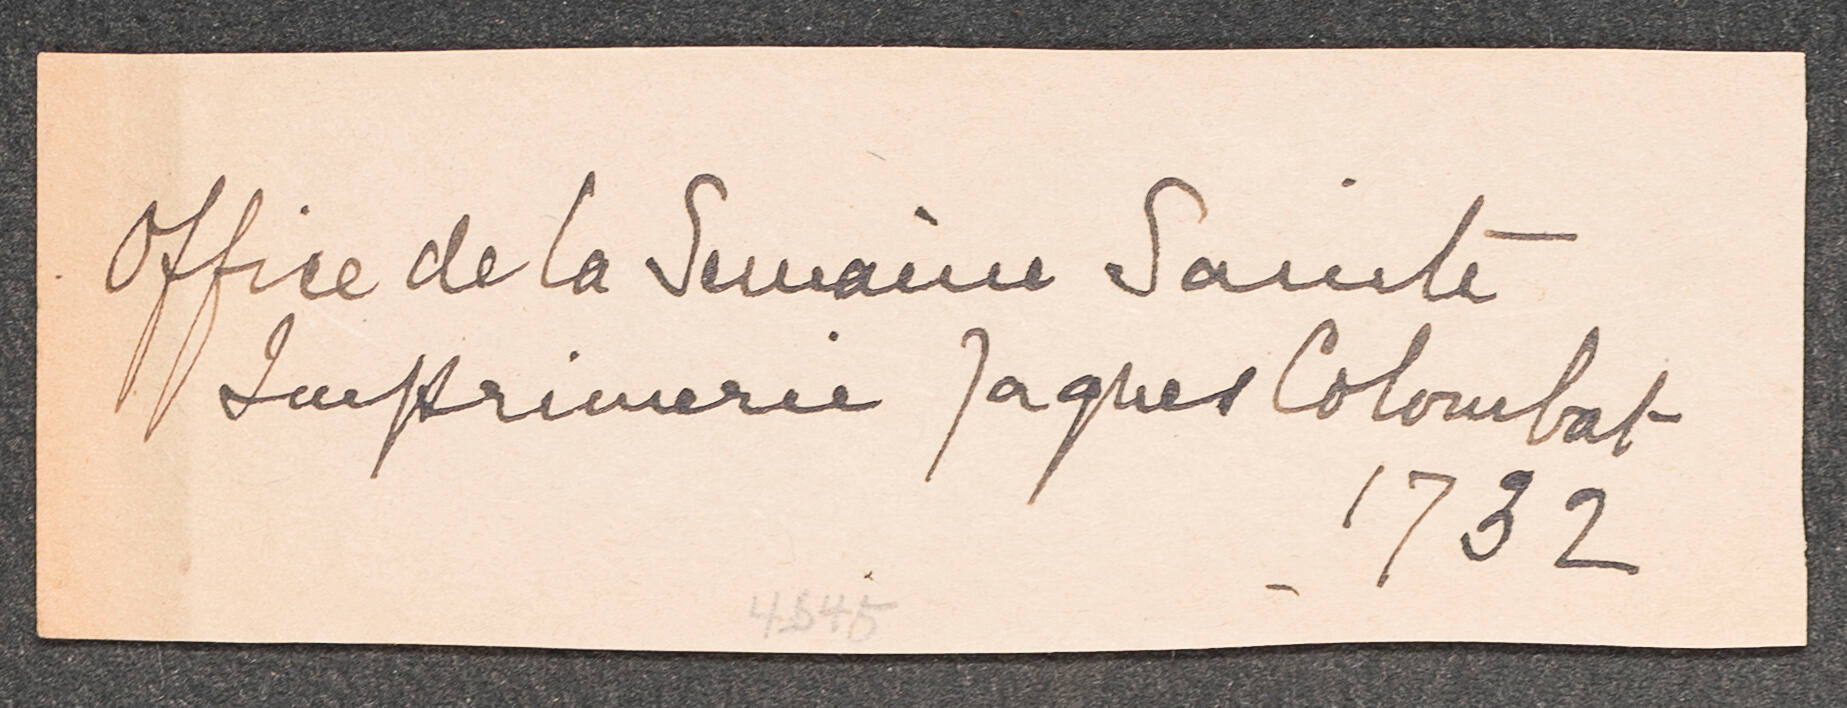 Office de la Semaine Sainte
Imprimerie Jaques Colombat
1732